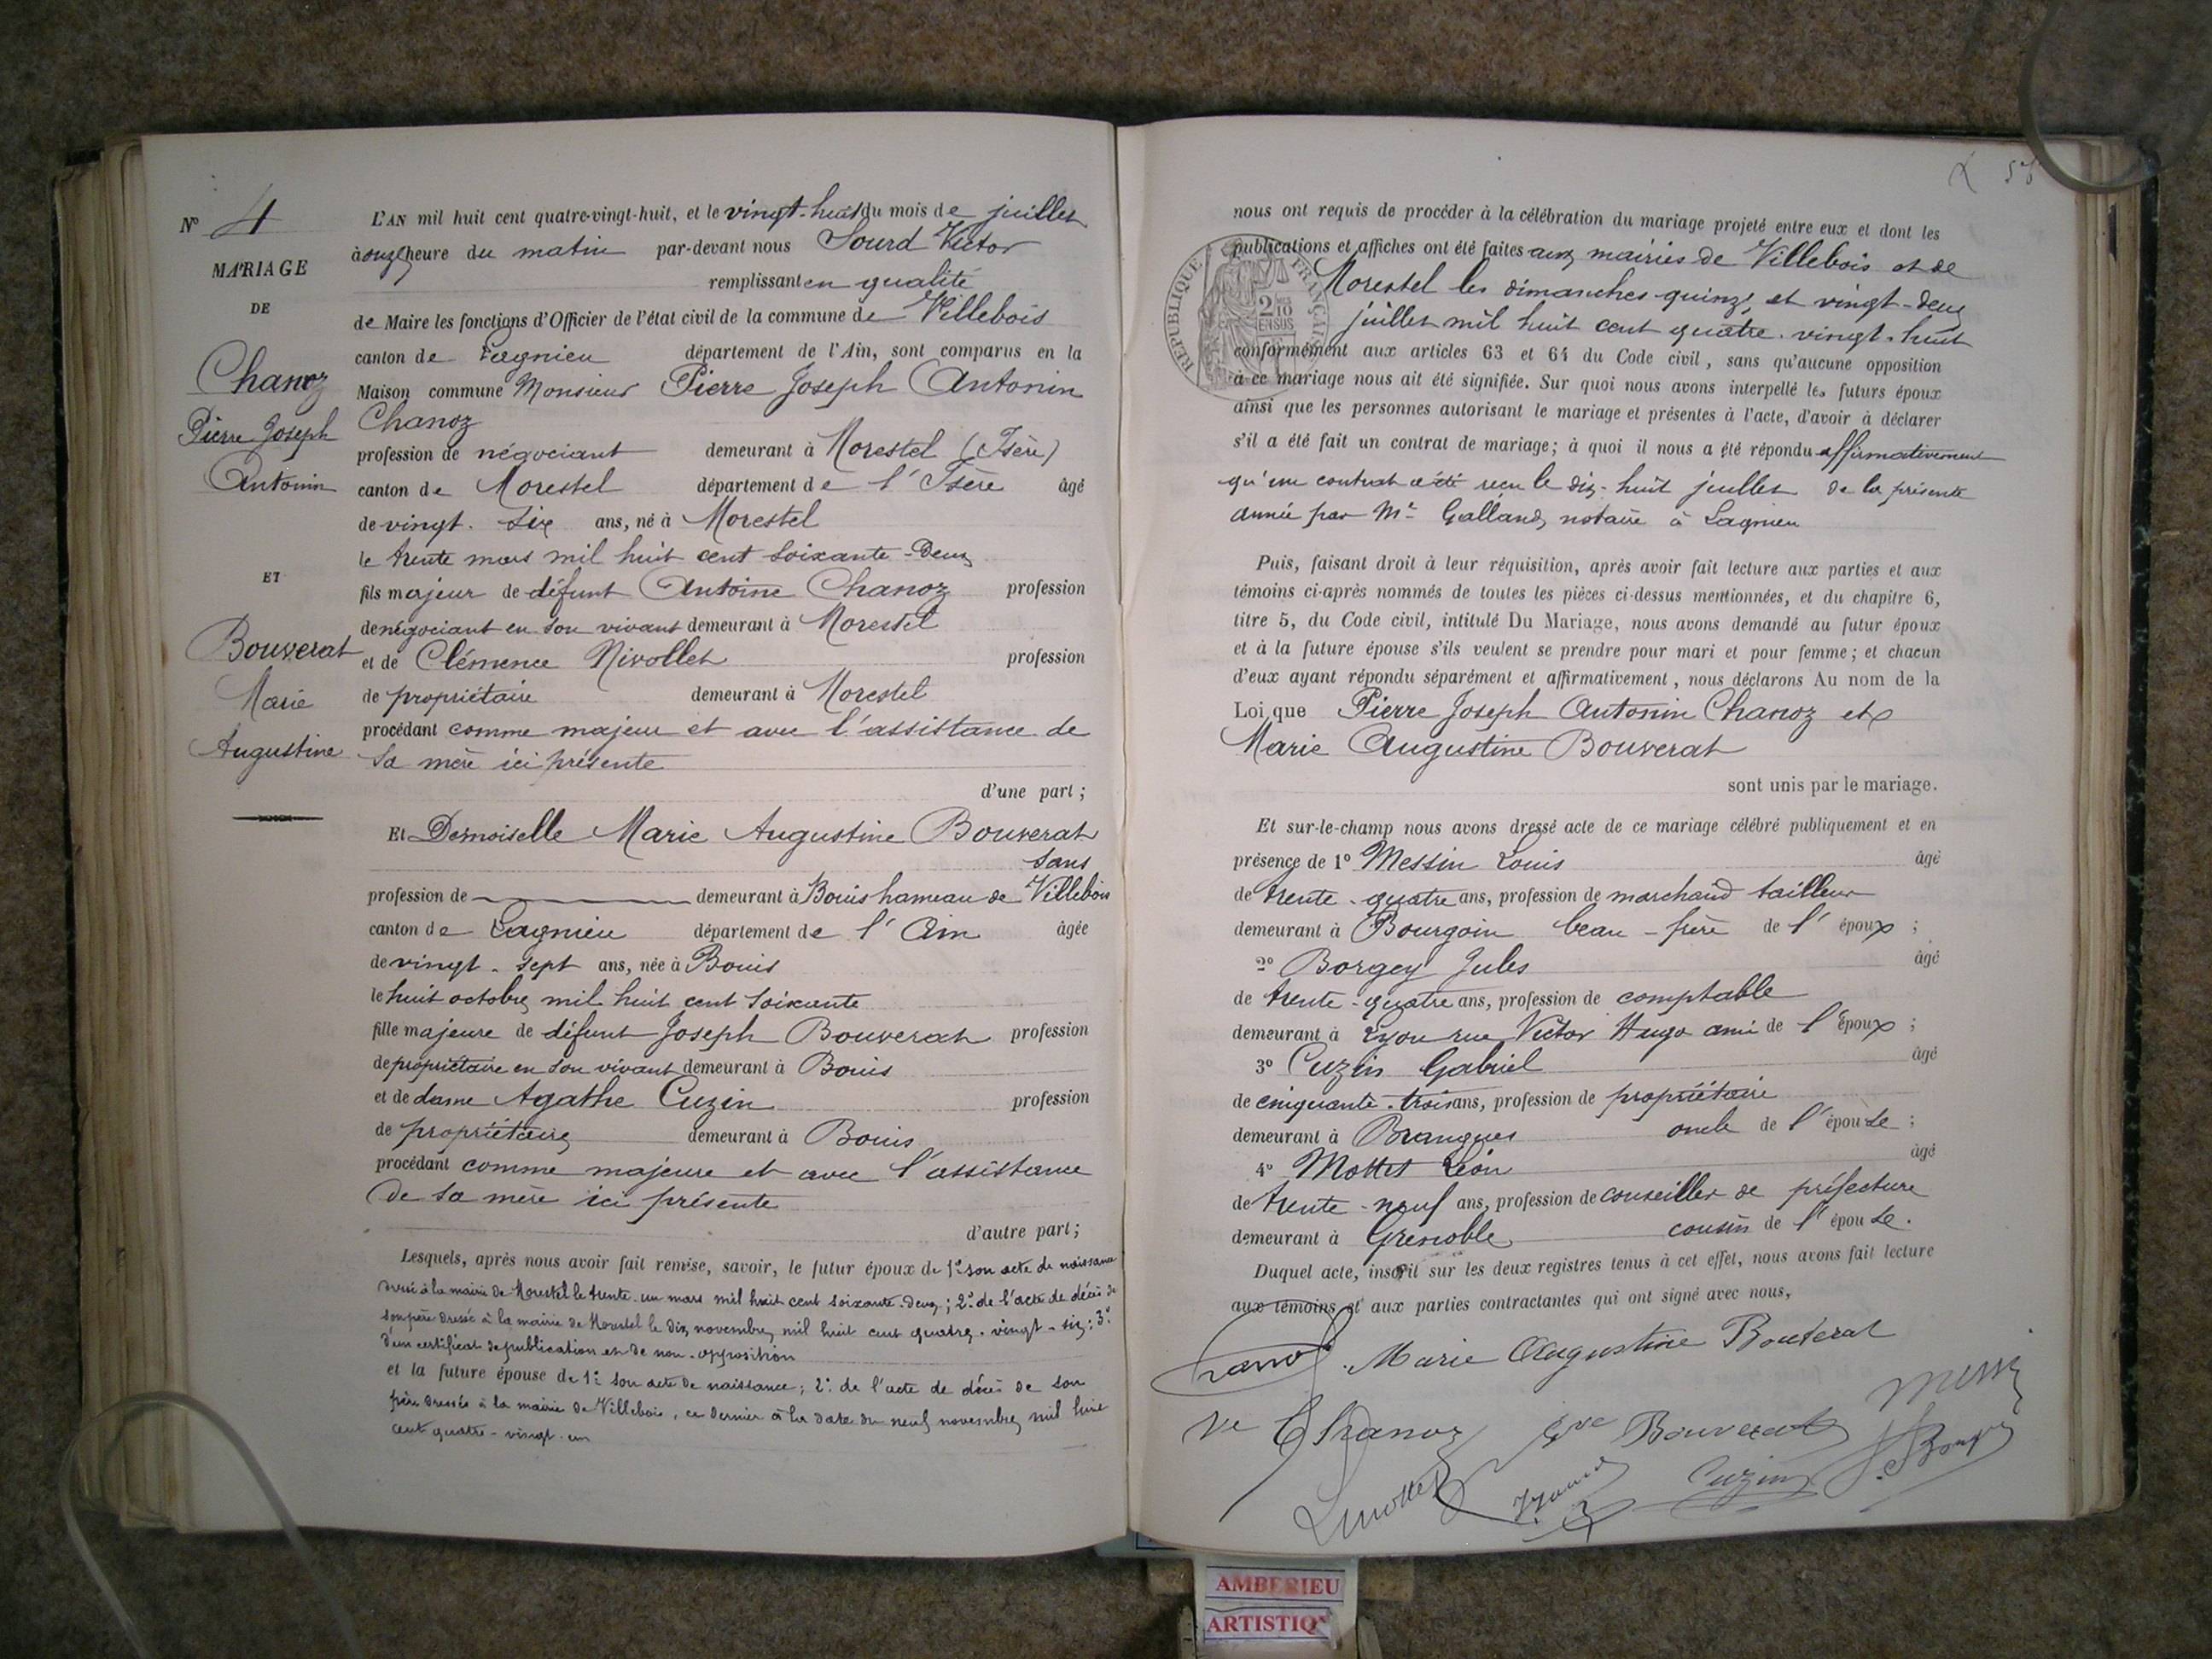 N° 4
MARIAGE
DE
Chanoz
Pierre Joseph
Antonin
ET
Bouverat
Marie
Augustine
L'AN mil huit cent quatre-vingt-huit, et le vingt-huit du mois de juillet
à onze heure du matin par-devant nous Sourd Victor
remplissant en qualité
de Maire les fonctions d'Officier de l'état civil de la commune de Villebois
canton de Lagnieu département de l'Ain, sont comparus en la
Maison commune Monsieur Pierre Joseph Antonin
Chanoz
profession de négociant demeurant à Morestel (Isère)
canton de Morestel département de l'Isère âgé
de vingt-six ans, né à Morestel
le trente mars mil huit cent soixante-deux
fils majeur de défunt Antoine Chanoz profession
de négociant en son vivant demeurant à Morestel
et de Clémence Nivollet profession
de propriétaire demeurant à Morestel
procédant comme majeur et avec l'assistance de
sa mère ici présente
d'une part ;
Et Demoiselle Marie Augustine Bouverat
sans
profession de demeurant à Bouis hameau de Villebois
canton de Lagnieu département de l'Ain âgée
de vingt-sept ans, née à Bouis
le huit octobre mil huit cent soixante
fille majeure de défunt Joseph Bouverat profession
de propriétaire en son vivant demeurant à Bouis
et de dame Agathe Cuzin profession
de propriétaire demeurant à Bouis
procédant comme majeure et avec l'assistance
de sa mère ici présente
d'autre part ;
Lesquels, après nous avoir fait remise, savoir, le futur époux de 1° son acte de naissance
dressé à la mairie de Morestel le trente-un mars mil huit cent soixante-deux ; 2° de l'acte de décès de
son père dressé à la mairie de Morestel le dix novembre mil huit cent quatre-vingt-six ; 3°
d'un certificat de publication et de non-opposition
et la future épouse de 1° son acte de naissance ; 2° de l'acte de décès de son
père dressés à la mairie de Villebois, ce dernier à la date du neuf novembre mil huit
cent quatre-vingt-un
nous ont requis de procéder à la célébration du mariage projeté entre eux et dont les
publications et affiches ont été faites aux mairies de Villebois et de
Morestel les dimanches quinze et vingt-deux
juillet mil huit cent quatre-vingt-huit
REPUBLIQUE FRANÇAISE
2 10
EN SUS
conformément aux articles 63 et 64 du Code civil, sans qu'aucune opposition
à ce mariage nous ait été signifiée. Sur quoi nous avons interpellé les futurs époux
ainsi que les personnes autorisant le mariage et présentes à l'acte, d'avoir à déclarer
s'il a été fait un contrat de mariage ; à quoi il nous a été répondu affirmativement
qu'un contrat a été reçu le dix-huit juillet de la présente
année par Me Galland, notaire à Lagnieu
Puis, faisant droit à leur réquisition, après avoir fait lecture aux parties et aux
témoins ci-après nommés de toutes les pièces ci-dessus mentionnées, et du chapitre 6,
titre 5, du Code civil, intitulé Du Mariage, nous avons demandé au futur époux
et à la future épouse s'ils veulent se prendre pour mari et pour femme ; et chacun
d'eux ayant répondu séparément et affirmativement, nous déclarons Au nom de la
Loi que Pierre Joseph Antonin Chanoz et
Marie Augustine Bouverat
sont unis par le mariage.
Et sur-le-champ nous avons dressé acte de ce mariage célébré publiquement et en
présence de 1° Messin Louis âgé
de trente-quatre ans, profession de marchand tailleur
demeurant à Bourgoin beau-frère de l'époux ;
2° Borgey Jules âgé
de trente-quatre ans, profession de comptable
demeurant à Lyon rue Victor Hugo ami de l'époux ;
3° Cuzin Gabriel âgé
de cinquante-trois ans, profession de propriétaire
demeurant à Brangues oncle de l'épouse ;
4° Mottet Léon âgé
de trente-neuf ans, profession de conseiller de préfecture
demeurant à Grenoble cousin de l'épouse.
Duquel acte, inscrit sur les deux registres tenus à cet effet, nous avons fait lecture
aux témoins et aux parties contractantes qui ont signé avec nous,
Marie Augustine Bouverat
Ve Chanoz Bouverat
Lmottet Cuzin
AMBERIEU
ARTISTIQ